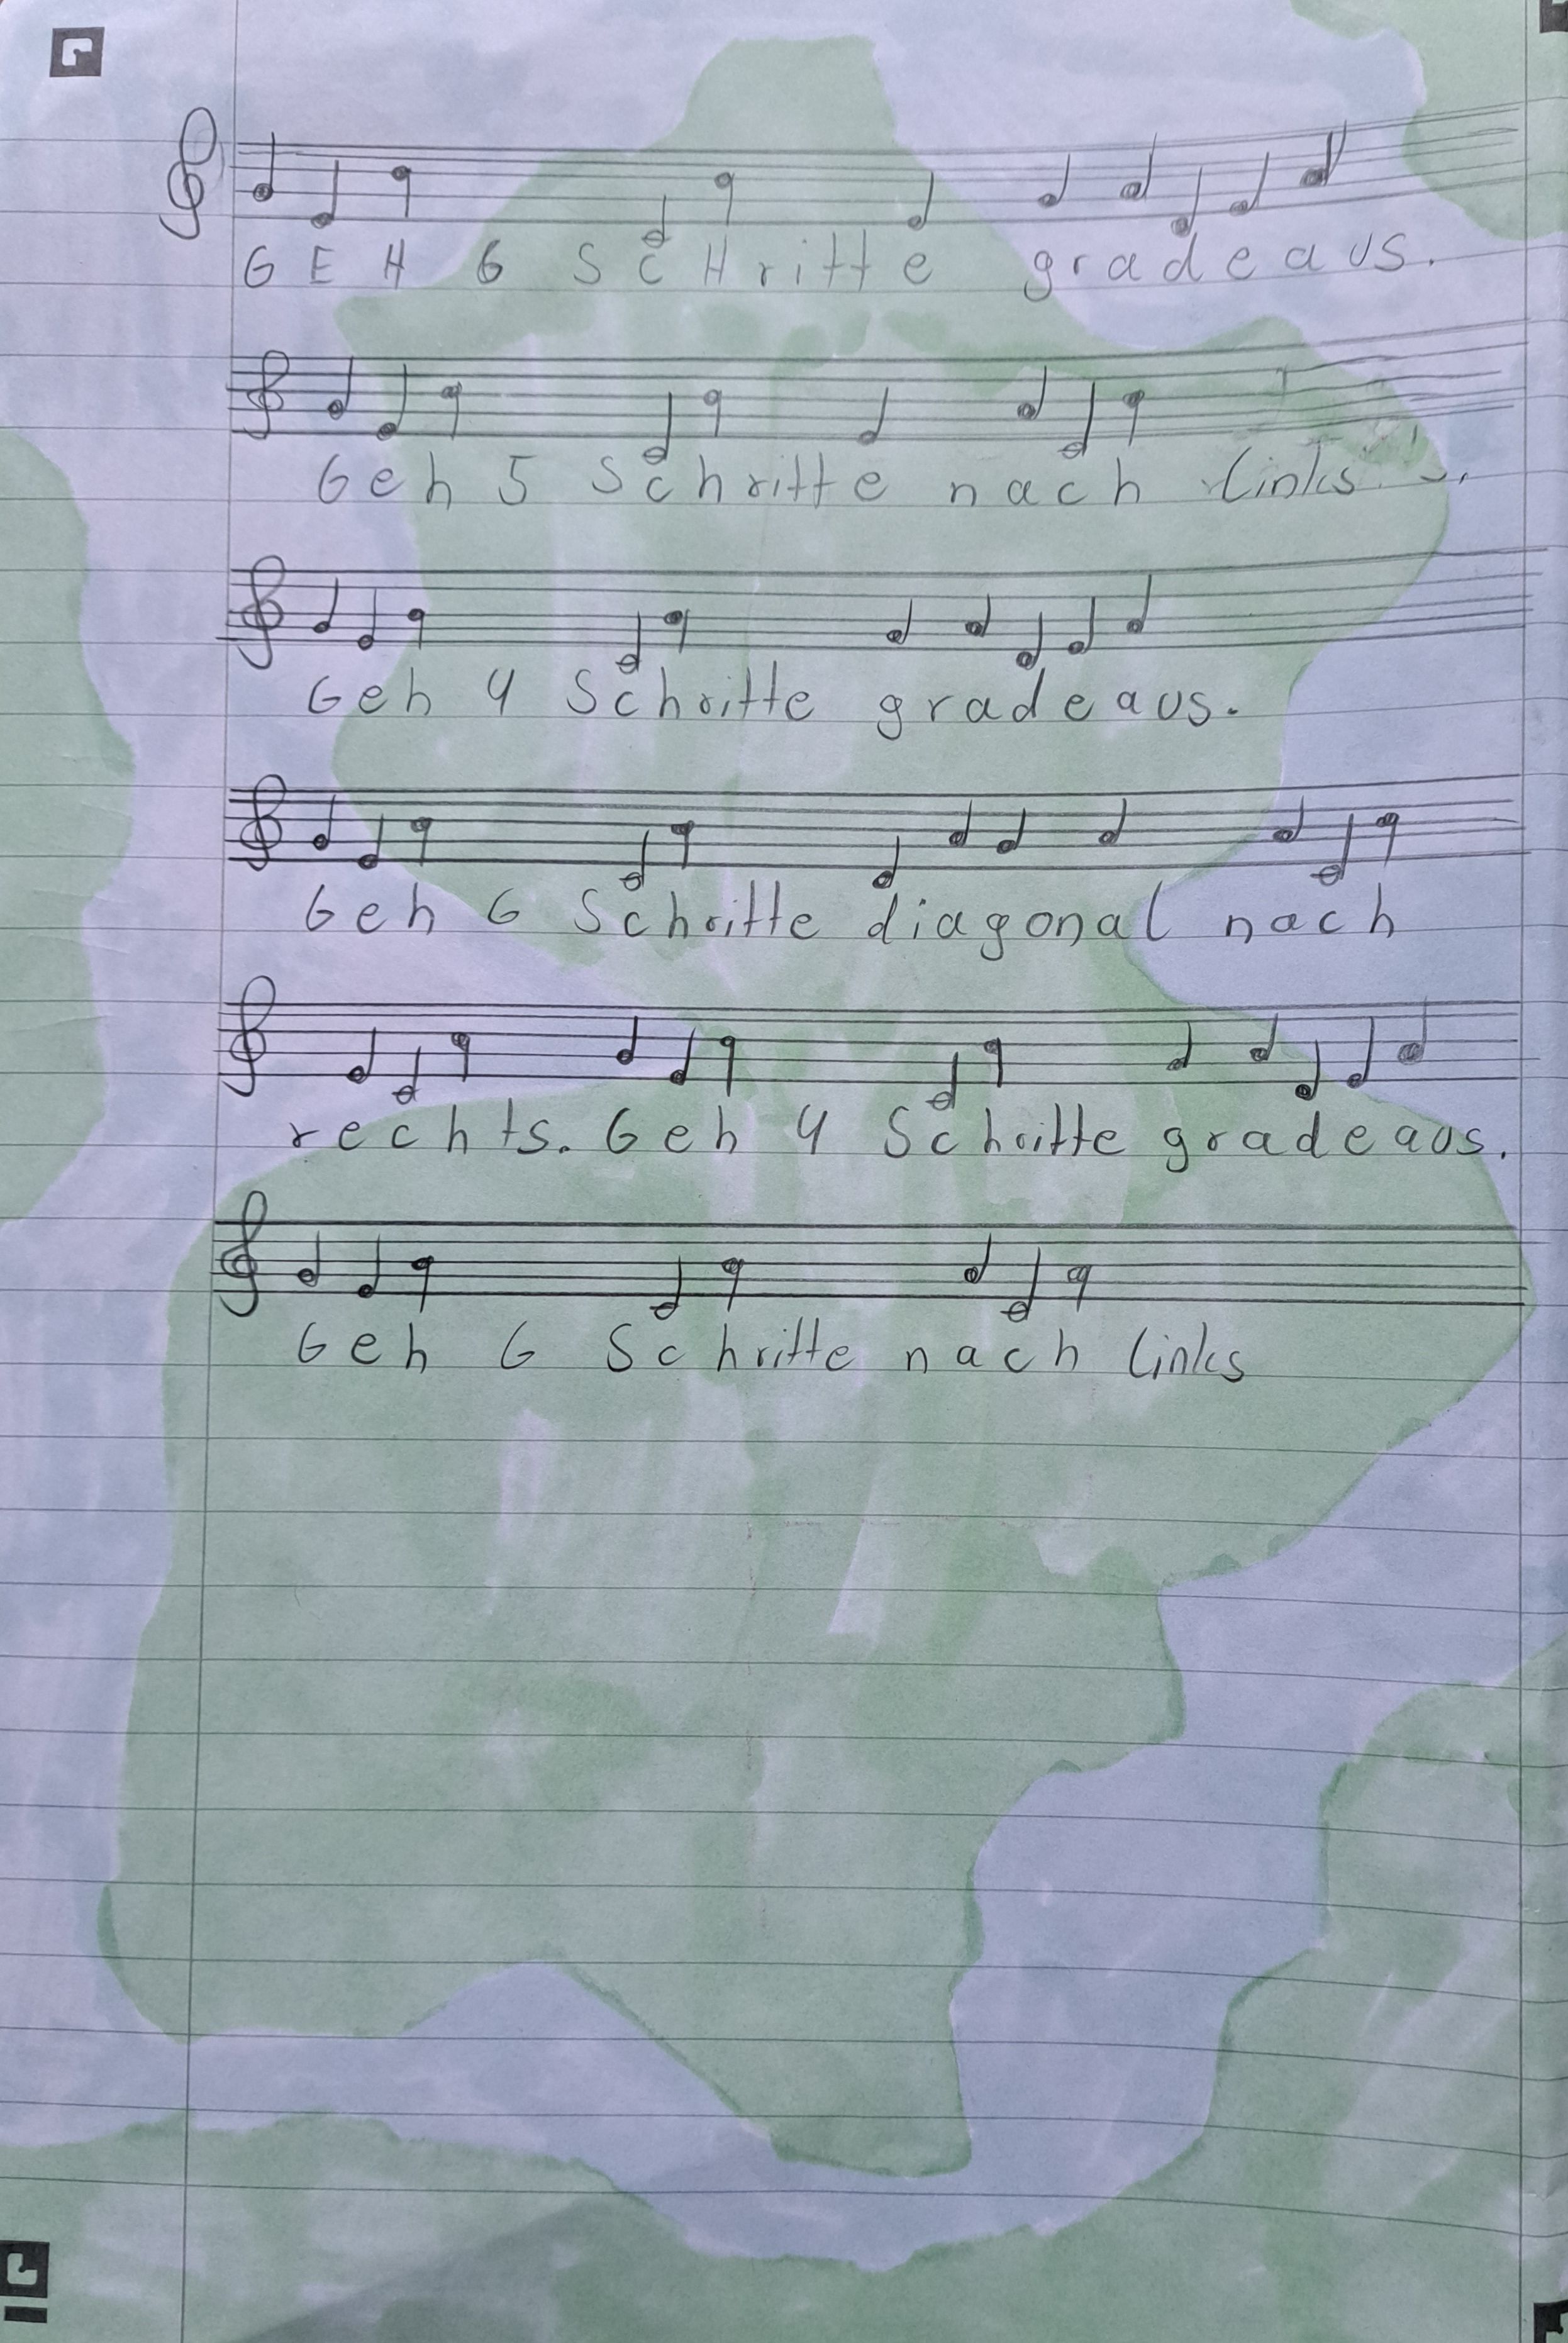 GEH 6 ScHritte gradeaus.
Geh 5 Schritte nach links.
Geh 4 Schritte gradeaus.
Geh 6 Schritte diagonal nach
rechts. Geh 4 Schritte gradeaus.
Geh 6 Schritte nach links